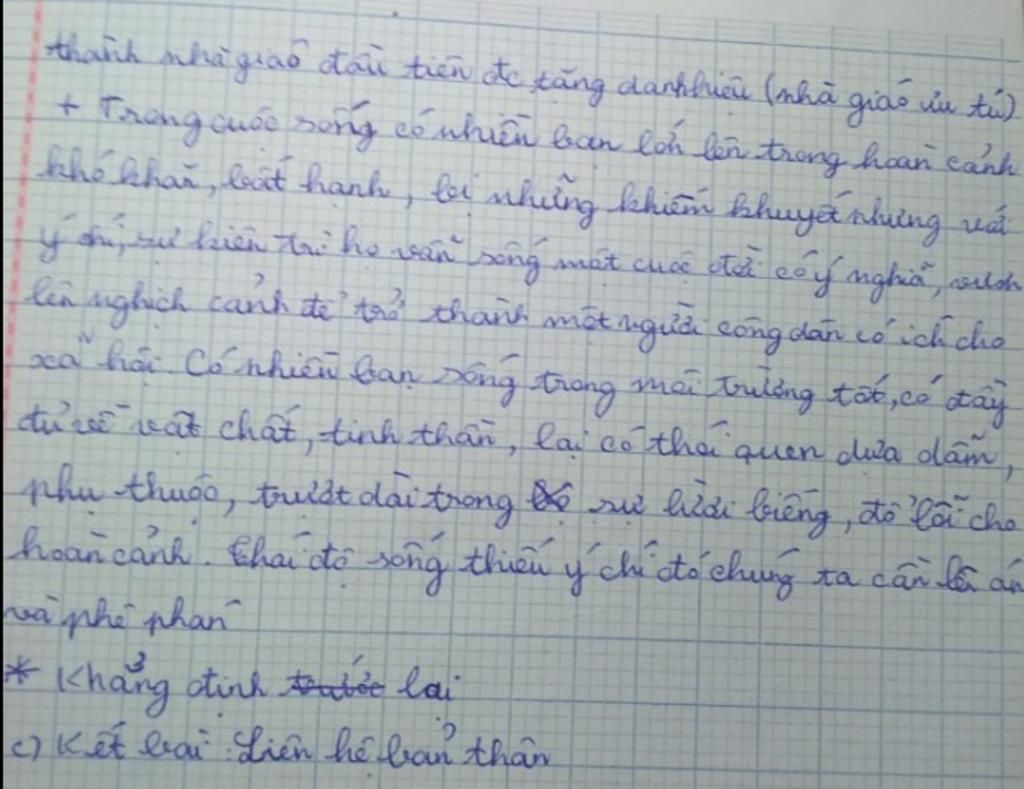 thành nhà giáo đầu tiên đc tặng danh hiệu (nhà giáo ưu tú)
+ Trong cuộc sống có nhiều bạn lớn lên trong hoàn cảnh
khó khăn, bất hạnh, bị những khiếm khuyết nhưng với
ý chí, sự kiên trì họ vẫn sống một cuộc đời có ý nghĩa, vượt
lên nghịch cảnh để trở thành một người công dân có ích cho
xã hội. Có nhiều bạn sống trong môi trường tốt, có đầy
đủ về vật chất, tinh thần, lại có thói quen dựa dẫm,
phụ thuộc, trượt dài trong sự lười biếng, đổ lỗi cho
hoàn cảnh. Thái độ sống thiếu ý chí đó chúng ta cần lên án
và phê phán
* Khẳng định trước lại
c) Kết bài: Liên hệ bản thân